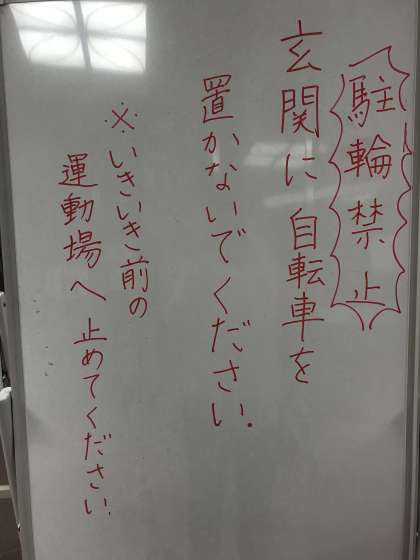 駐輪禁止
玄関に自転車を
置かないでください.
※いきいき前の
運動場へ止めてください.